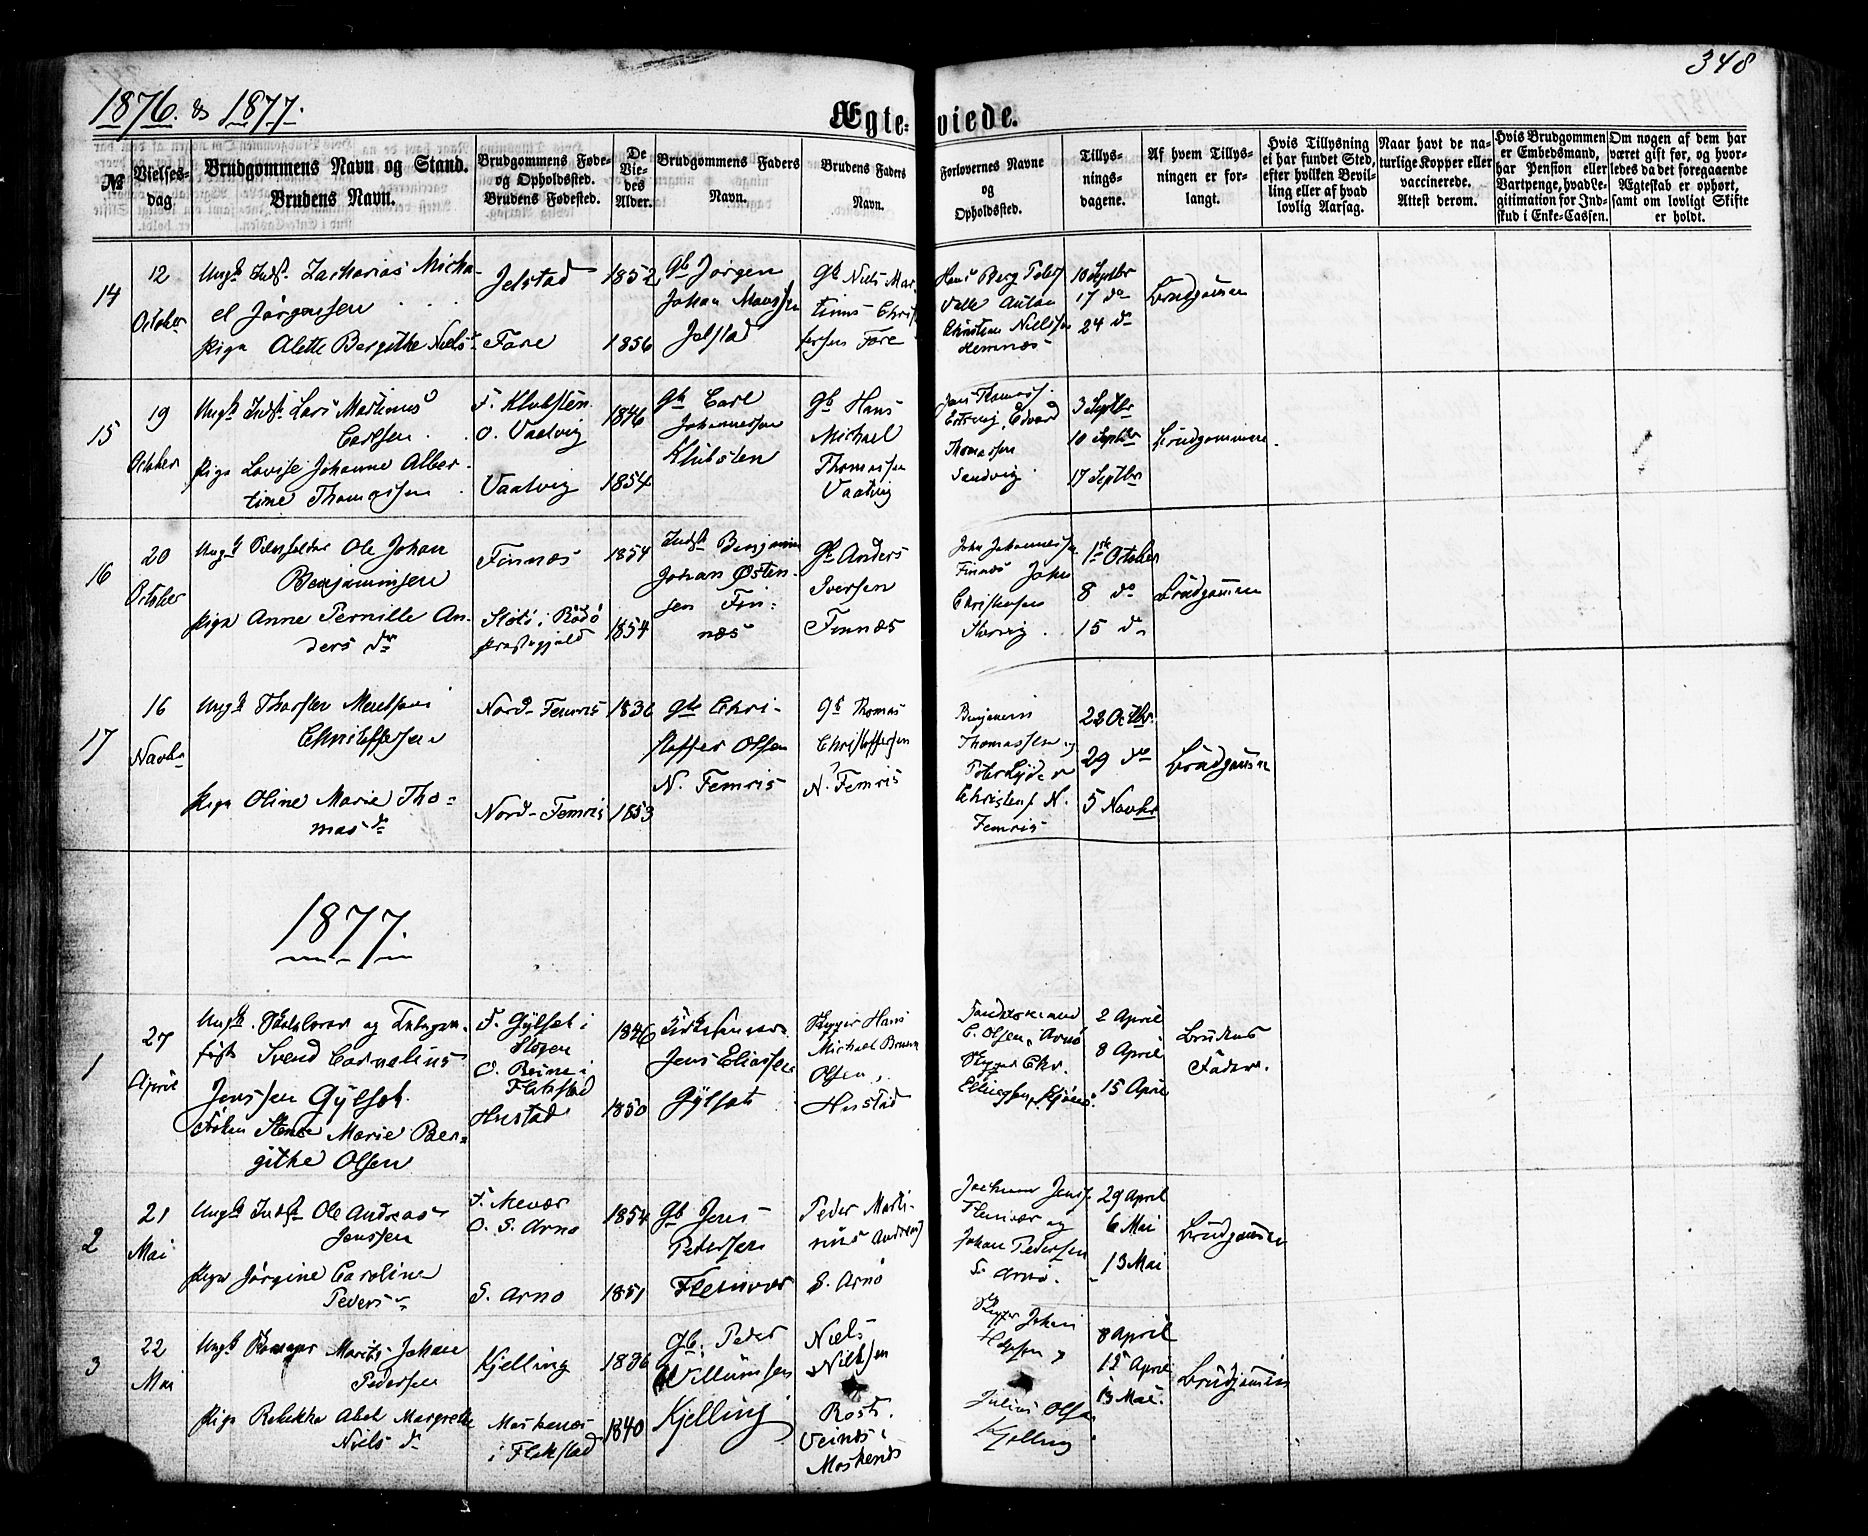 348
1876. & 1877.
Ægteviede.
№
Vielsesdag.
Brudgommens Navn og Stand.
Brudens Navn.
Brudgommens Føde-
og Opholdssted.
Brudens Fødested.
De
Vie-
des
Alder.
Brudgommens Faders
Navn.
Brudens Faders
Navn.
Forlovernes Navne
og
Opholdssted.
Tillys-
nings-
dagene.
Af hvem Tillys-
ningen er for-
langt.
Hvis Tillysning
ei har fundet Sted,
efter hvilken Bevil-
ling eller af hvad
lovlig Aarsag.
Naar havt de na-
turlige Kopper eller
vaccinerede.
Attest derom.
Hvis Brudgommen
er Embedsmand,
har Pension eller
Vartpenge, hvad Le-
gitimation for Ind-
skud i Enke-Cassen.
Om nogen af dem har
været gift før, og hvor-
ledes da det foregaaende
Ægteskab er ophørt,
samt om lovligt Skifte
er holdt.
14
12
October
Ungk Indst. Zacharias Micha-
el Jørgensen
Pige Alette Bergithe Niels
Jelstad
Fore
1852
1856
Gb Jørgen
Johan
Jelstad
Gb Niels Mar-
tinus Chris
Fore
Hans Berg
Anton
Christian Nielssen
Hemnæs
10 Septbr
17 do
24 do
Brudgommen
15
19
October
Ungk Indst Lars Martinus
Carlsen
Pige Lovise Johanne Alber-
tine Thomassen
F. Klubsten
O. Vaatvig
Vaatvig
1846
1854
Gb Carl
Johannessen
Klubsten
Gb Hans
Michael
Thomassen
Vaatvig
Edvard
Thomassen
Sandvig
3 Septbr
10 Septbr
17 Septbr
Brudgommen
16
20
October
Ungk Ole Johan
Benjaminsen
Pige Anne Pernille An-
ders dr
Finnæs
i Rødø
Præstegjeld
1854
1854
Indst Benjamin
Johan Østen-
sen Fin-
næs
Gb Anders
Iversen
Finnæs
John Johannessen
Finnæs John
Christensen
1ste October
8 do
15 do
Brudgommen
17
16
Novbr
Ungk Thorsten Meul
Christoffersen
Pige Oline Marie Tho-
mas dr
Nord-Femris
Nord-Femris
1836
1853
Gb Chri-
stoffer Olsen
N. Femris
Gb Thomas
Christoffersen
N. Femris
Benjamin
Thomassen og
Peter
Christens. N.
Femris
22 Octbr.
29 do
5 Novbr
Brudgommen
1877.
1
27
April
Ungk. og
Svend Cornelius
Jenssen Gylset
Marie Ber-
githe Olsen
F. Gylset i
O. Reine i
Flakstad
Hustad
1846
1850
Jens Eliassen
Gylset
Skyger Hans
Michael Bruun
Olsen,
Hustad
C. Olsen, Arnø
Chr.
2 April
8 April
15 April
Brudens
Fader.
2
21
Mai
Ungk Indst Ole Andreas
Jenssen
Pige Jørgine Caroline
Peders
F.
O. S. Arnø
S. Arnø
1854
1851
Gb Jens
Pedersen
Fleinvær
Peder Marti-
nus
S. Arnø
Jenss
Fleinvær og
Johan Pedersen
S. Arnø.
29 April
6 Mai
13 Mai
Brudgommen
3
22
Mai
Ungk Morits Johan
Pedersen
Pige Rebekka Abel Margrethe
Niels dr
Kjelling
Moskenæs
i Flakstad
1836
1840
Gb. Peder
Willumsen
Kjelling
Niels
Nielsen
Moskenæs
Johan
Julius Olsen
Kjelling
8 April
15 April
13 Mai.
Brudgommen